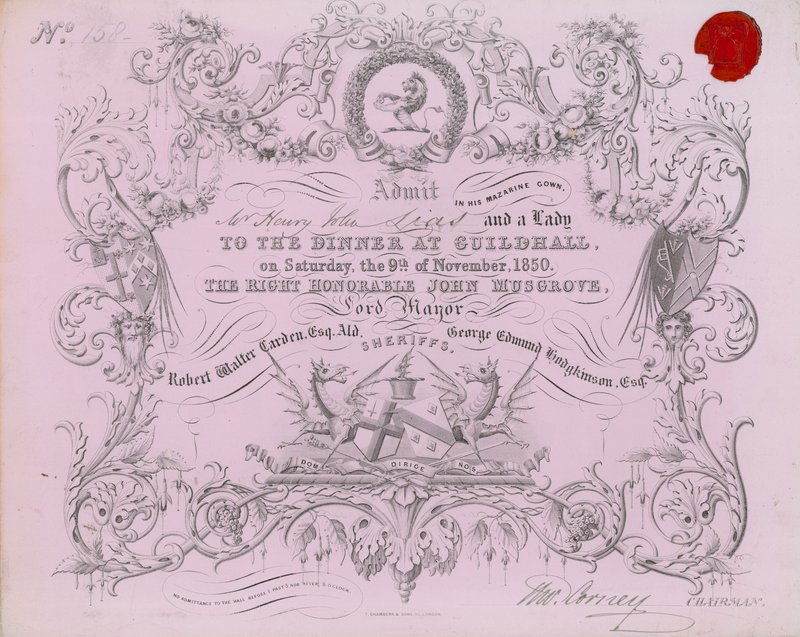 No. 158
Admit
IN HIS MAZARINE GOWN,
Mr Henry John Lias and a Lady
TO THE DINNER AT GUILDHALL,
on Saturday, the 9th of November, 1850.
THE RIGHT HONORABLE JOHN MUSGROVE,
Lord Mayor
Robert Walter Carden, Esq. Ald. George Edmund Hodgkinson, Esq.
SHERIFFS.
DOM. DIRIGE NOS.
NO ADMITTANCE TO THE HALL BEFORE ½ PAST 3 NOR AFTER 5 O'CLOCK.
Thos. Corney CHAIRMAN.
T. CHAMBERS & SONS, LONDON.